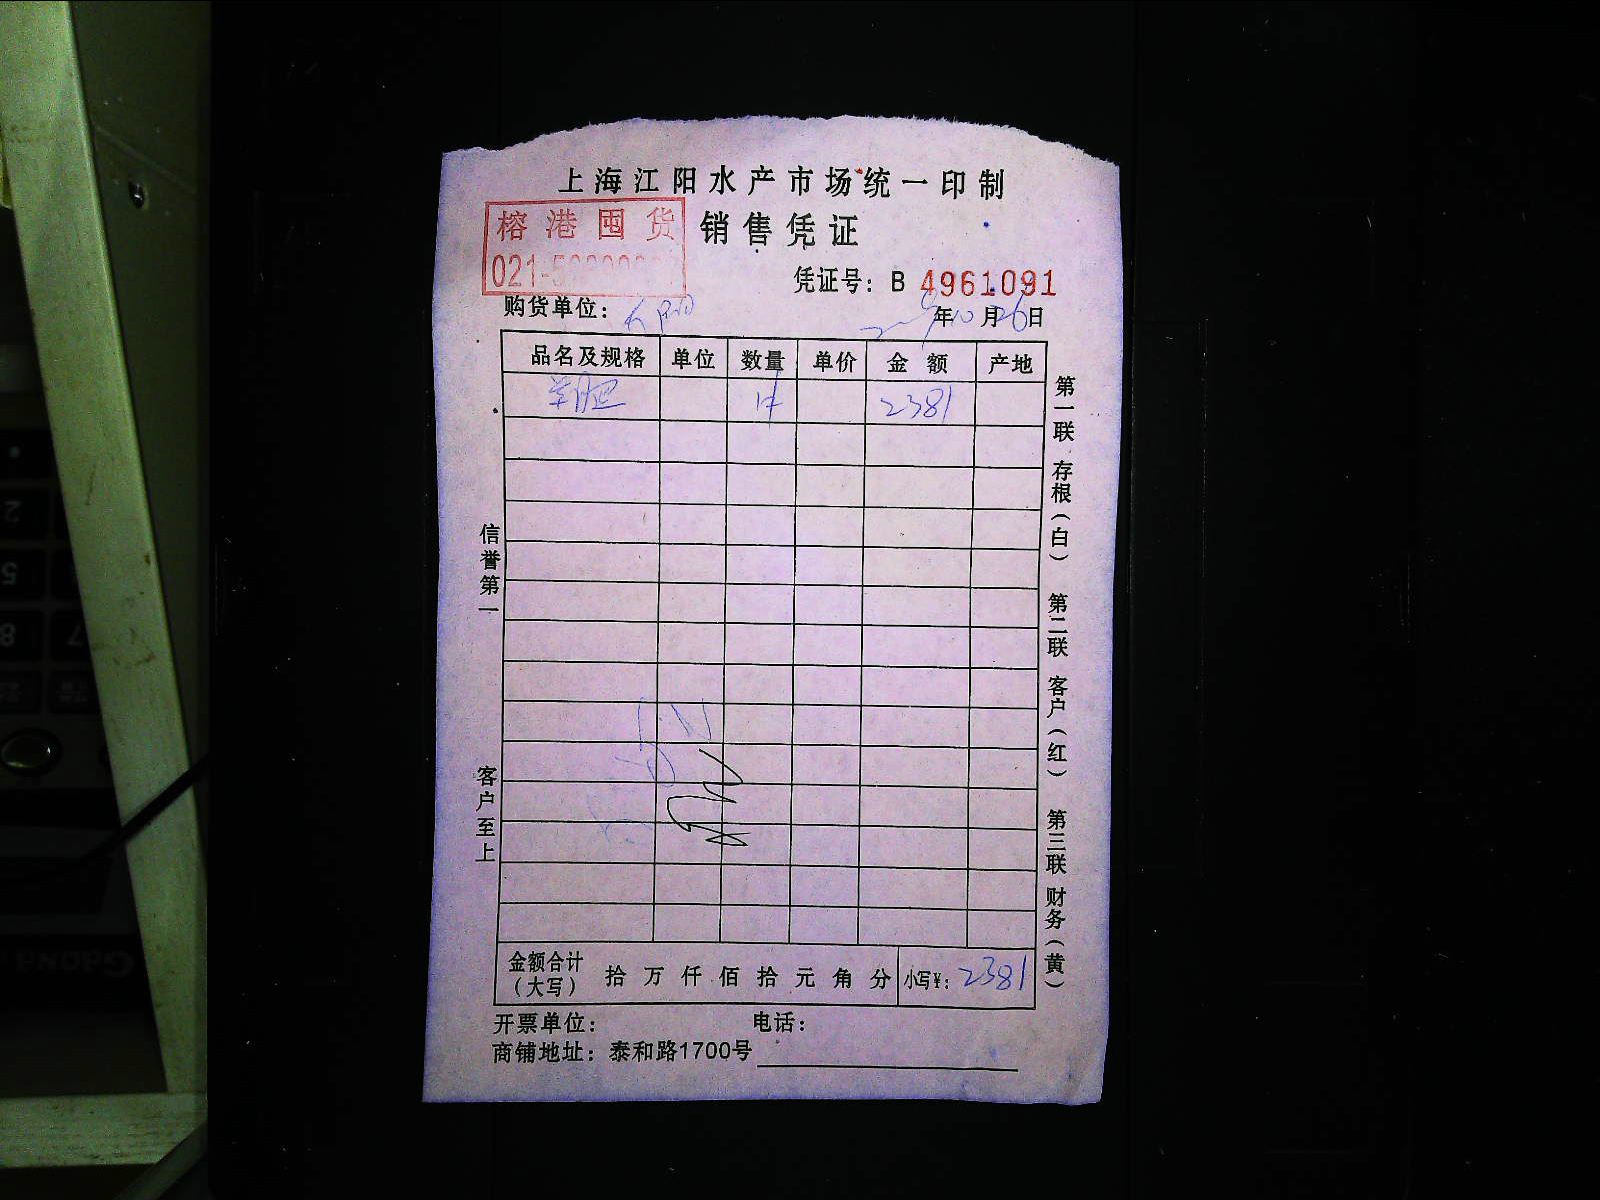 上海江阳水产市场统一印制
榕港囤货 销售凭证
021-5
凭证号：B 4961091
购货单位： 年10月26日
品名及规格 单位 数量 单价 金额 产地
2381
信誉第一
客户至上
第一联 存根（白） 第二联 客户（红） 第三联 财务（黄）
金额合计（大写） 拾 万 仟 佰 拾 元 角 分 小写￥：2381
开票单位： 电话：
商铺地址：泰和路1700号
2
5
8
7